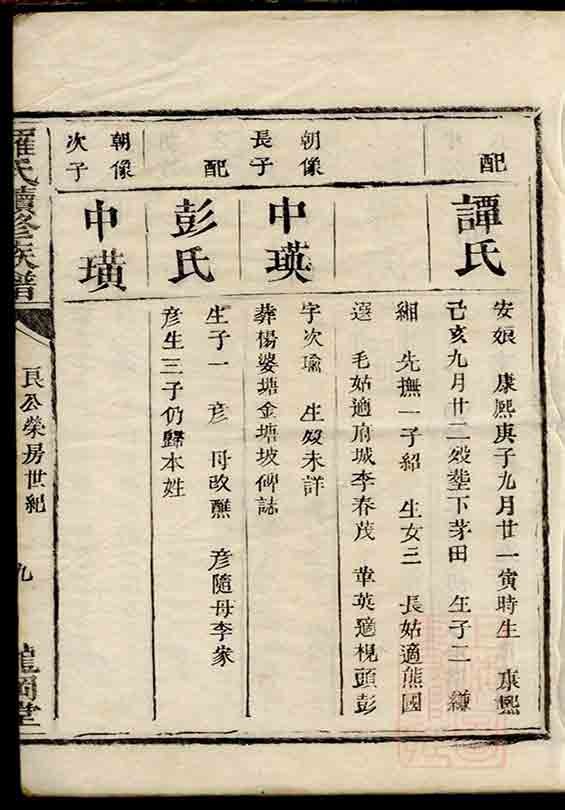 配
譚氏
安娘 康熙庚子九月廿一寅時生 康熙
己亥九月廿二歿塟下茅田 生子二 縑
緗 先撫一子紹 生女三 長姑適熊國
選 毛姑適府城李春茂 華英適梘頭彭
朝像
長子
中瑛
字次瑜 生歿未詳
葬楊婆塘金塘坡碑誌
配
彭氏
生子一 彦 母改醮 彦隨母李家
彦生三子仍歸本姓
朝像
次子
中璜
羅氏續修族譜
良公榮房世紀
九